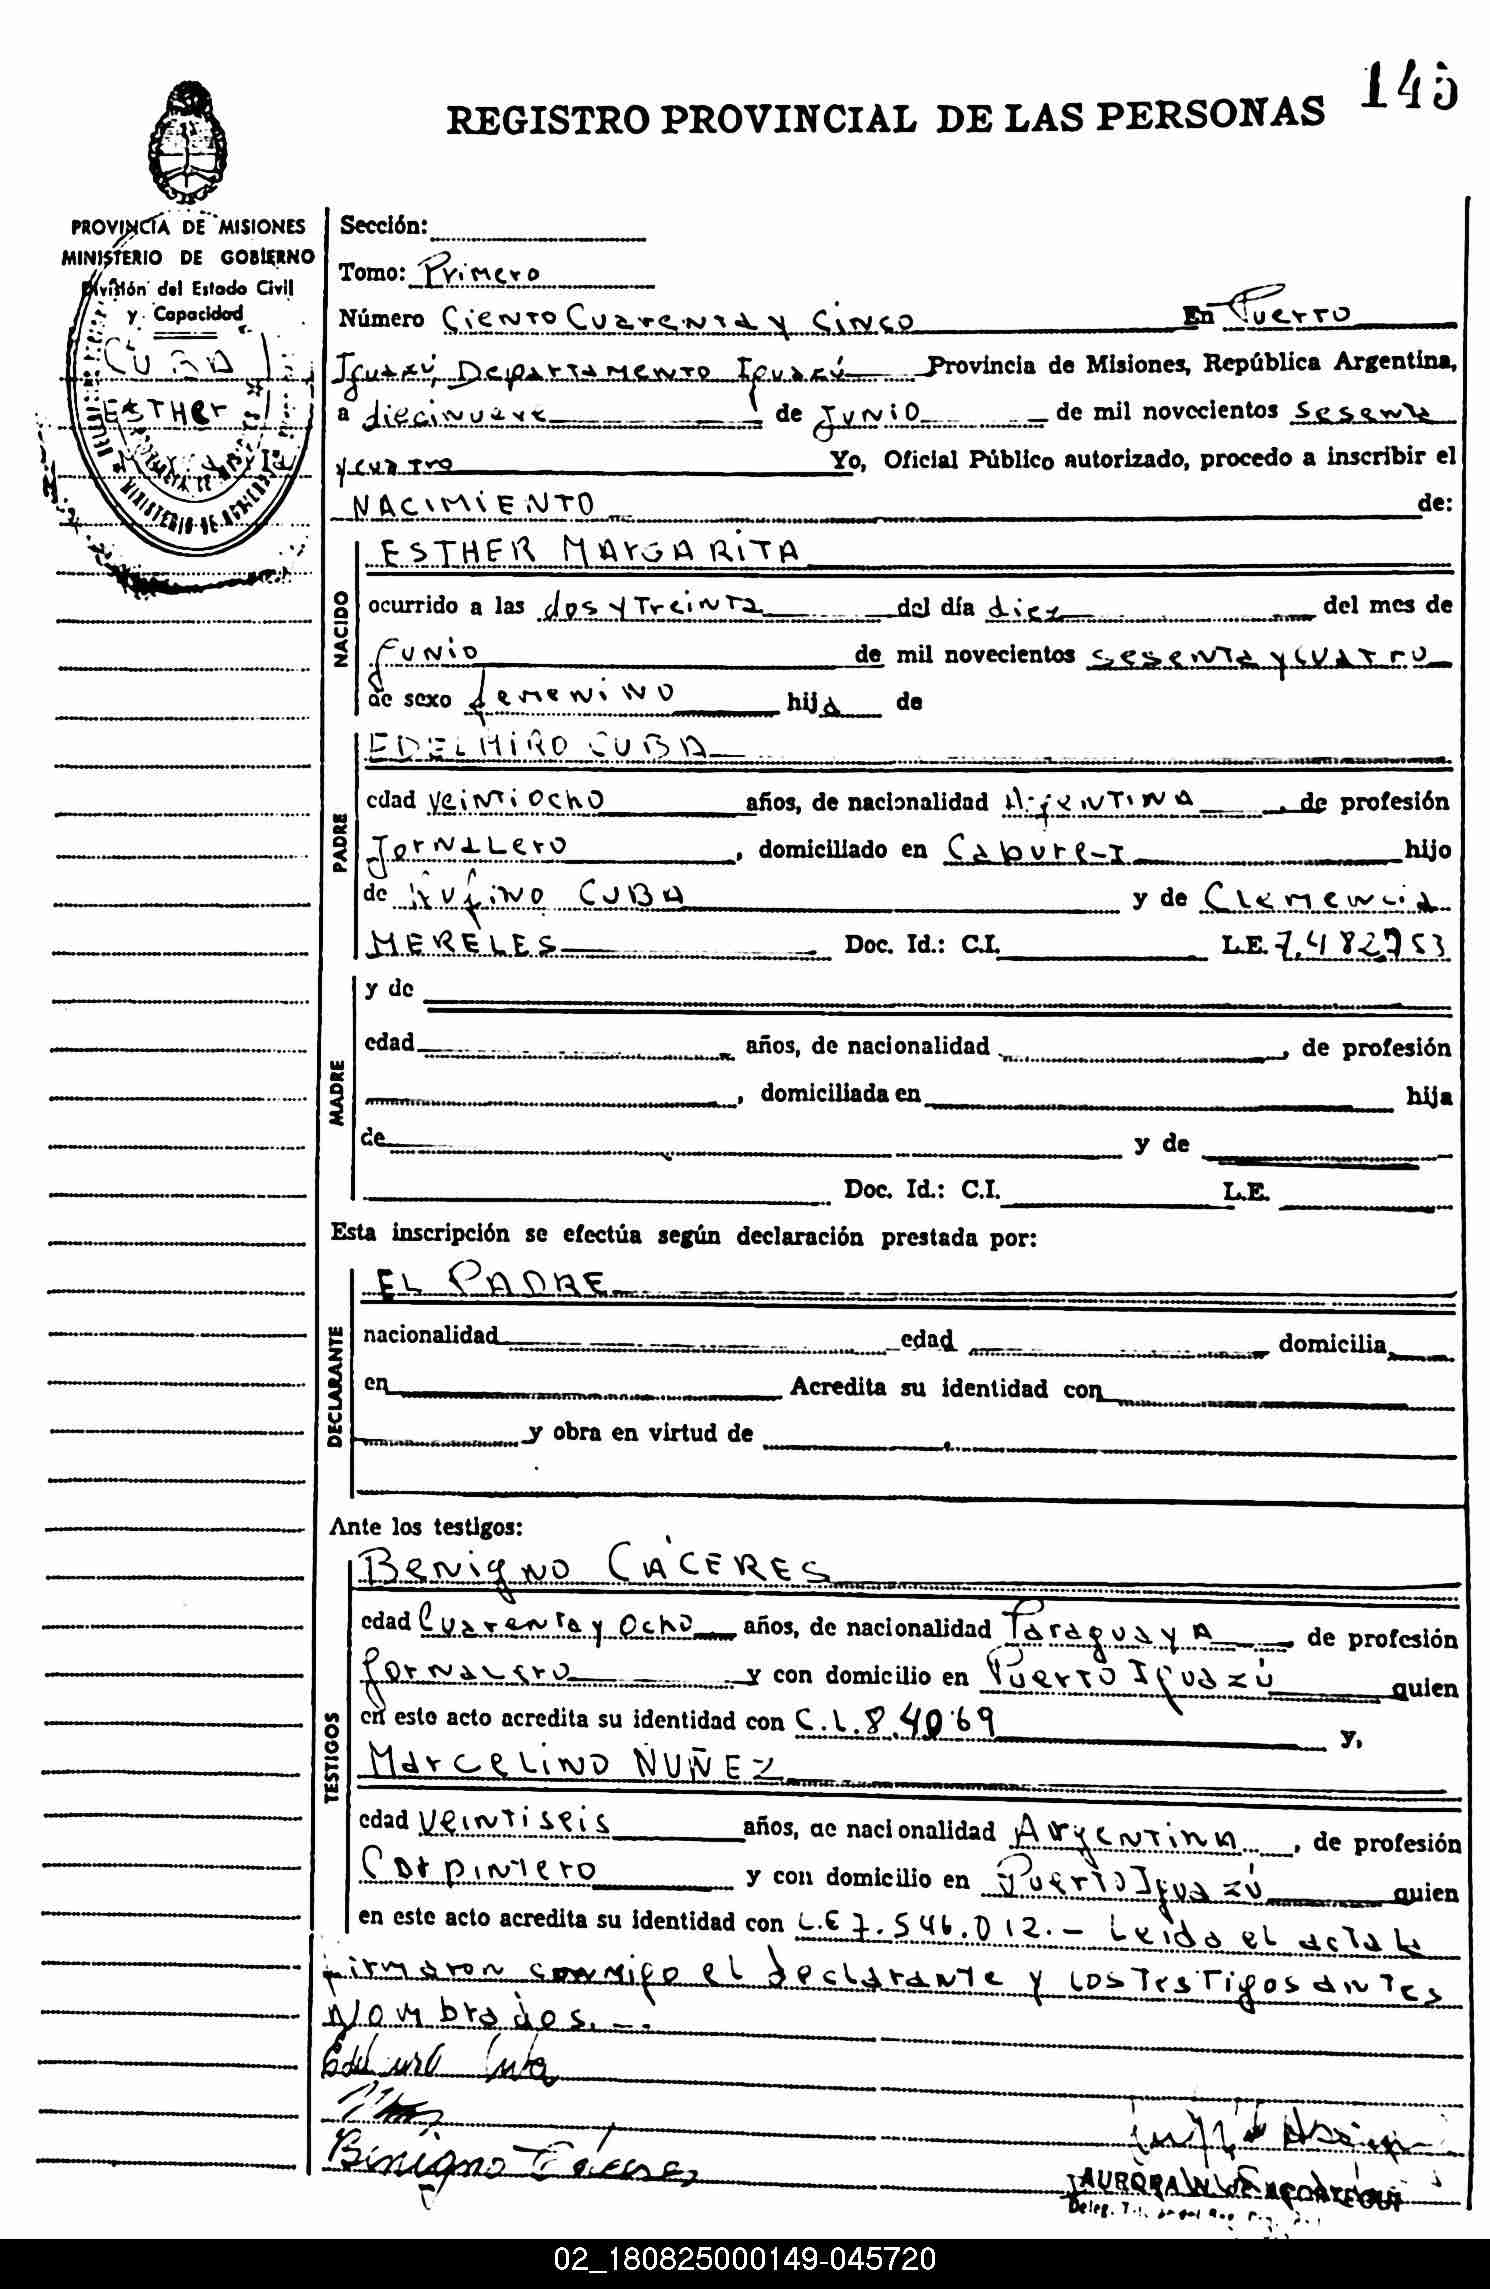 145
REGISTRO PROVINCIAL DE LAS PERSONAS
PROVINCIA DE MISIONES
MINISTERIO DE GOBIERNO
División del Estado Civil
y Capacidad
CUBA
ESTHER
Sección:
Tomo: Primero
Número Ciento Cuarenta y Cinco En Puerto
Iguazú, Departamento Iguazú Provincia de Misiones, República Argentina,
a diecinueve de Junio de mil novecientos sesenta
y cuatro Yo, Oficial Público autorizado, procedo a inscribir el
NACIMIENTO de:
NACIDO
ESTHER MARGARITA
ocurrido a las dos y Treinta del día diez del mes de
Junio de mil novecientos sesenta y cuatro
de sexo femenino hija de
PADRE
EDELMIRO CUBA
edad veintiocho años, de nacionalidad Argentina, de profesión
Jornalero, domiciliado en Cabure-I hijo
de Rufino CUBA y de Clemencia
MERELES Doc. Id.: C.I. L.E. 7.482.753
MADRE
y de
edad años, de nacionalidad , de profesión
, domiciliada en hija
de y de
Doc. Id.: C.I. L.E.
Esta inscripción se efectúa según declaración prestada por:
DECLARANTE
EL PADRE
nacionalidad edad domicilia
en Acredita su identidad con
y obra en virtud de
Ante los testigos:
TESTIGOS
Benigno CÁCERES
edad Cuarenta y Ocho años, de nacionalidad Paraguaya de profesión
Jornalero y con domicilio en Puerto Iguazú quien
en este acto acredita su identidad con C.I. 8.4069 y,
Marcelino NUÑEZ
edad veintiseis años, de nacionalidad Argentina, de profesión
Carpintero y con domicilio en Puerto Iguazú quien
en este acto acredita su identidad con L.E 7.546.012.- Leída el acta la
firmaron conmigo el declarante y los testigos antes
Nombrados.-.
Edelmiro Cuba
Benigno Cáceres
AURORA
02_180825000149-045720